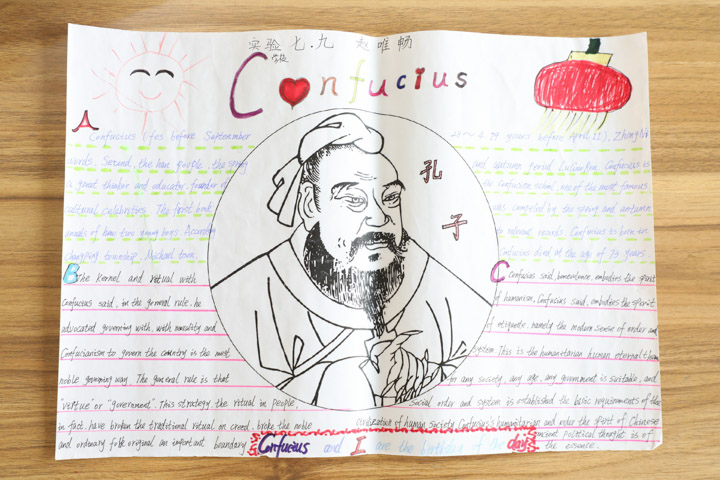 实验 七.九 赵唯畅
学校
Confucius
孔
子
A
Confucius (before September
years before April 11), Zhong Ni
words, Second, the han people, the spring
and autumn period. Confucius is
a great thinker and educator, founder of
the Confucian school, of the most famous
cultural celebrities. The first
compiled by the spring and autumn
annals of. According
relevant records. Confucius is born in
changping township,
Confucius died at the age of 73 years
B The kernel and ritual with
C Confucius said, benevolence, embodies the spirit
Confucius said, in the general rule, he
of humanism, Confucius said, embodies the spirit
advocated governing with, with morality and
of etiquette, namely the modern sense of order and
Confucianism to govern the country is the most
system. This is the humanitarian human eternal
noble governing way. The general rule is that
for any society, any age, any government is suitable, and
"virtue" or "government". This strategy, the ritual in people,
social order and system is established the basic requirements of the
in fact, have broken the traditional ritual on creed, broke the noble
civilization of human society Confucius's humanitarian and order the spirit of Chinese
and ordinary folk original an important boundary
ancient political thought is of
the essence.
Confucius and I are the birthday of the day